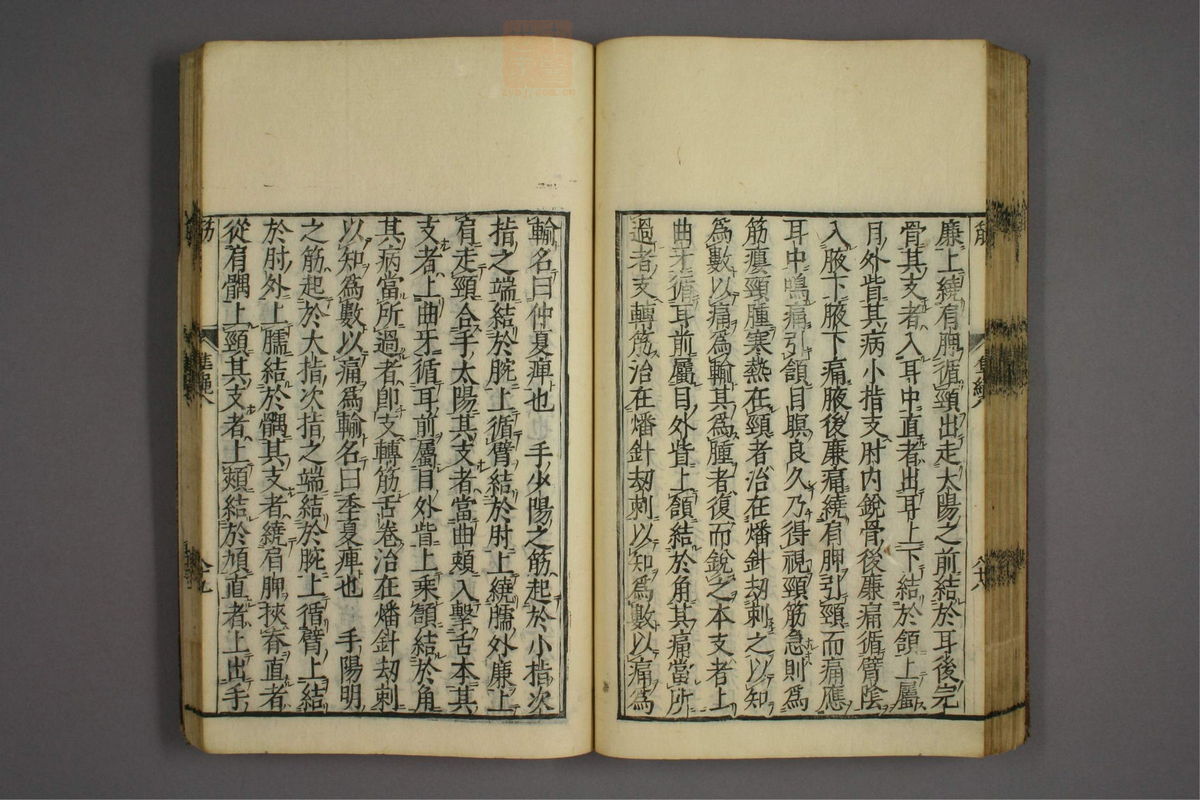 廉上繞肩胛循頸出走太陽之前結於耳後完
骨其支者入耳中直者出耳上下結於頷上屬
目外眥其病小指支肘内銳骨後廉痛循臂陰
入腋下腋下痛腋後廉痛繞肩胛引頸而痛應
耳中鳴痛引頷目瞑良久乃得視頸筋急則為
筋瘻頸腫寒熱在頸者治在燔針劫刺之以知
為數以痛為輸其為腫者復而銳之本支者上
曲牙循耳前屬目外眥上頷結於角其痛當所
過者支轉筋治在燔針劫刺以知為數以痛為
輸名曰仲夏痺也 手少陽之筋起於小指次
指之端結於腕上循臂結於肘上繞臑外廉上
肩走頸合手太陽其支者當曲頰入擊舌本其
支者上曲牙循耳前屬目外眥上乘頷結於角
其病當所過者即支轉筋舌卷治在燔針劫刺
以知為數以痛為輸名曰季夏痺也 手陽明
之筋起於大指次指之端結於腕上循臂上結
於肘外上臑結於髃其支者繞肩胛挾脊直者
從肩髃上頸其支者上頰結於頄直者上出手